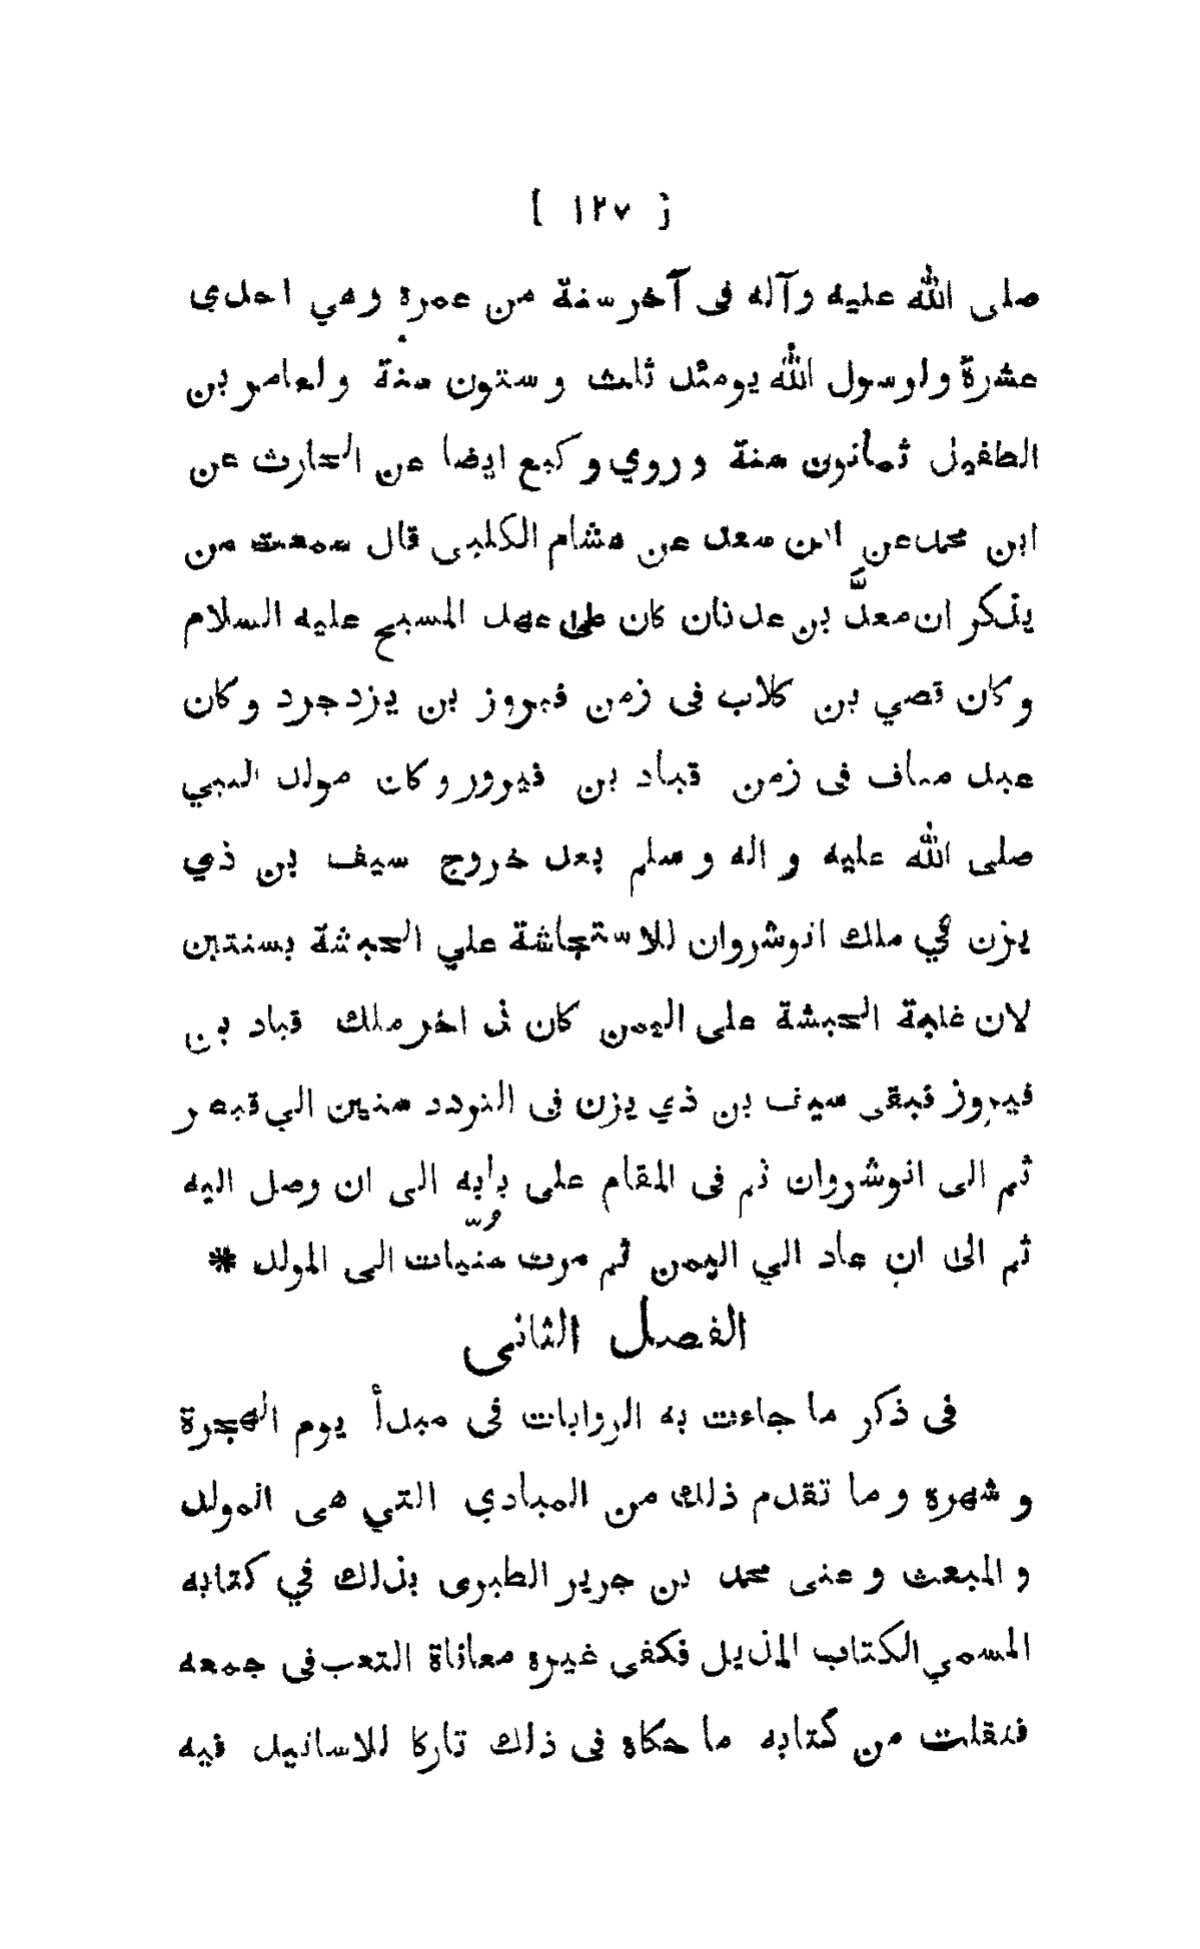 [ ١٢٧ ]
صلى الله عليه وآله فى آخر سنة من عمره وهي احدى
عشرة ولرسول الله يومئذ ثلث وستون سنة ولعامر بن
الطفيل ثمانون سنة وروي وكيع ايضا عن الحارث عن
ابن محمد عن ابن سعد عن هشام الكلبى قال سمعت من
يذكر ان معدَّ بن عدنان كان على عهد المسيح عليه السلام
وكان قصي بن كلاب فى زمن فيروز بن يزدجرد وكان
عبد مناف فى زمن قباد بن فيروز وكان مولد النبي
صلى الله عليه واله وسلم بعد خروج سيف بن ذي
يزن في ملك انوشروان للاستجاشة علي الحبشة بسنتين
لان غلبة الحبشة على اليمن كان فى اخر ملك قباد بن
فيروز فبقى سيف بن ذي يزن فى التردد سنين الي قيصر
ثم الى انوشروان ثم فى المقام على بابه الى ان وصل اليه
ثم الى ان عاد الي اليمن ثم مرت سُنيّات الى المولد *
الفصل الثانى
فى ذكر ما جاءت به الروايات فى مبدأ يوم الهجرة
وشهره وما تقدم ذلك من المبادي التي هى المولد
والمبعث وعنى محمد بن جرير الطبرى بذلك في كتابه
المسمي الكتاب المذيل فكفى غيره معاناة التعب فى جمعه
فنقلت من كتابه ما حكاه فى ذلك تاركا للاسانيد فيه